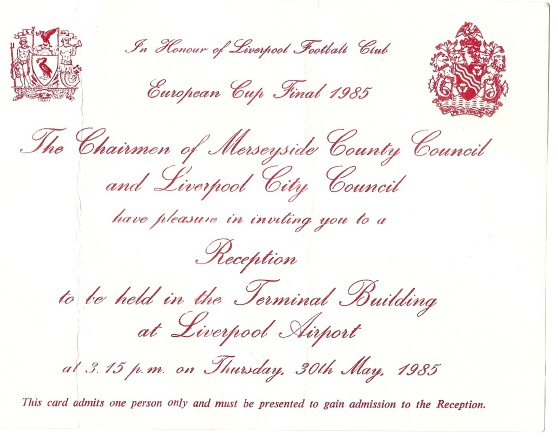 In Honour of Liverpool Football Club
European Cup Final 1985
The Chairmen of Merseyside County Council
and Liverpool City Council
have pleasure in inviting you to a
Reception
to be held in the Terminal Building
at Liverpool Airport
at 3.15 p.m. on Thursday, 30th May, 1985
This card admits one person only and must be presented to gain admission to the Reception.